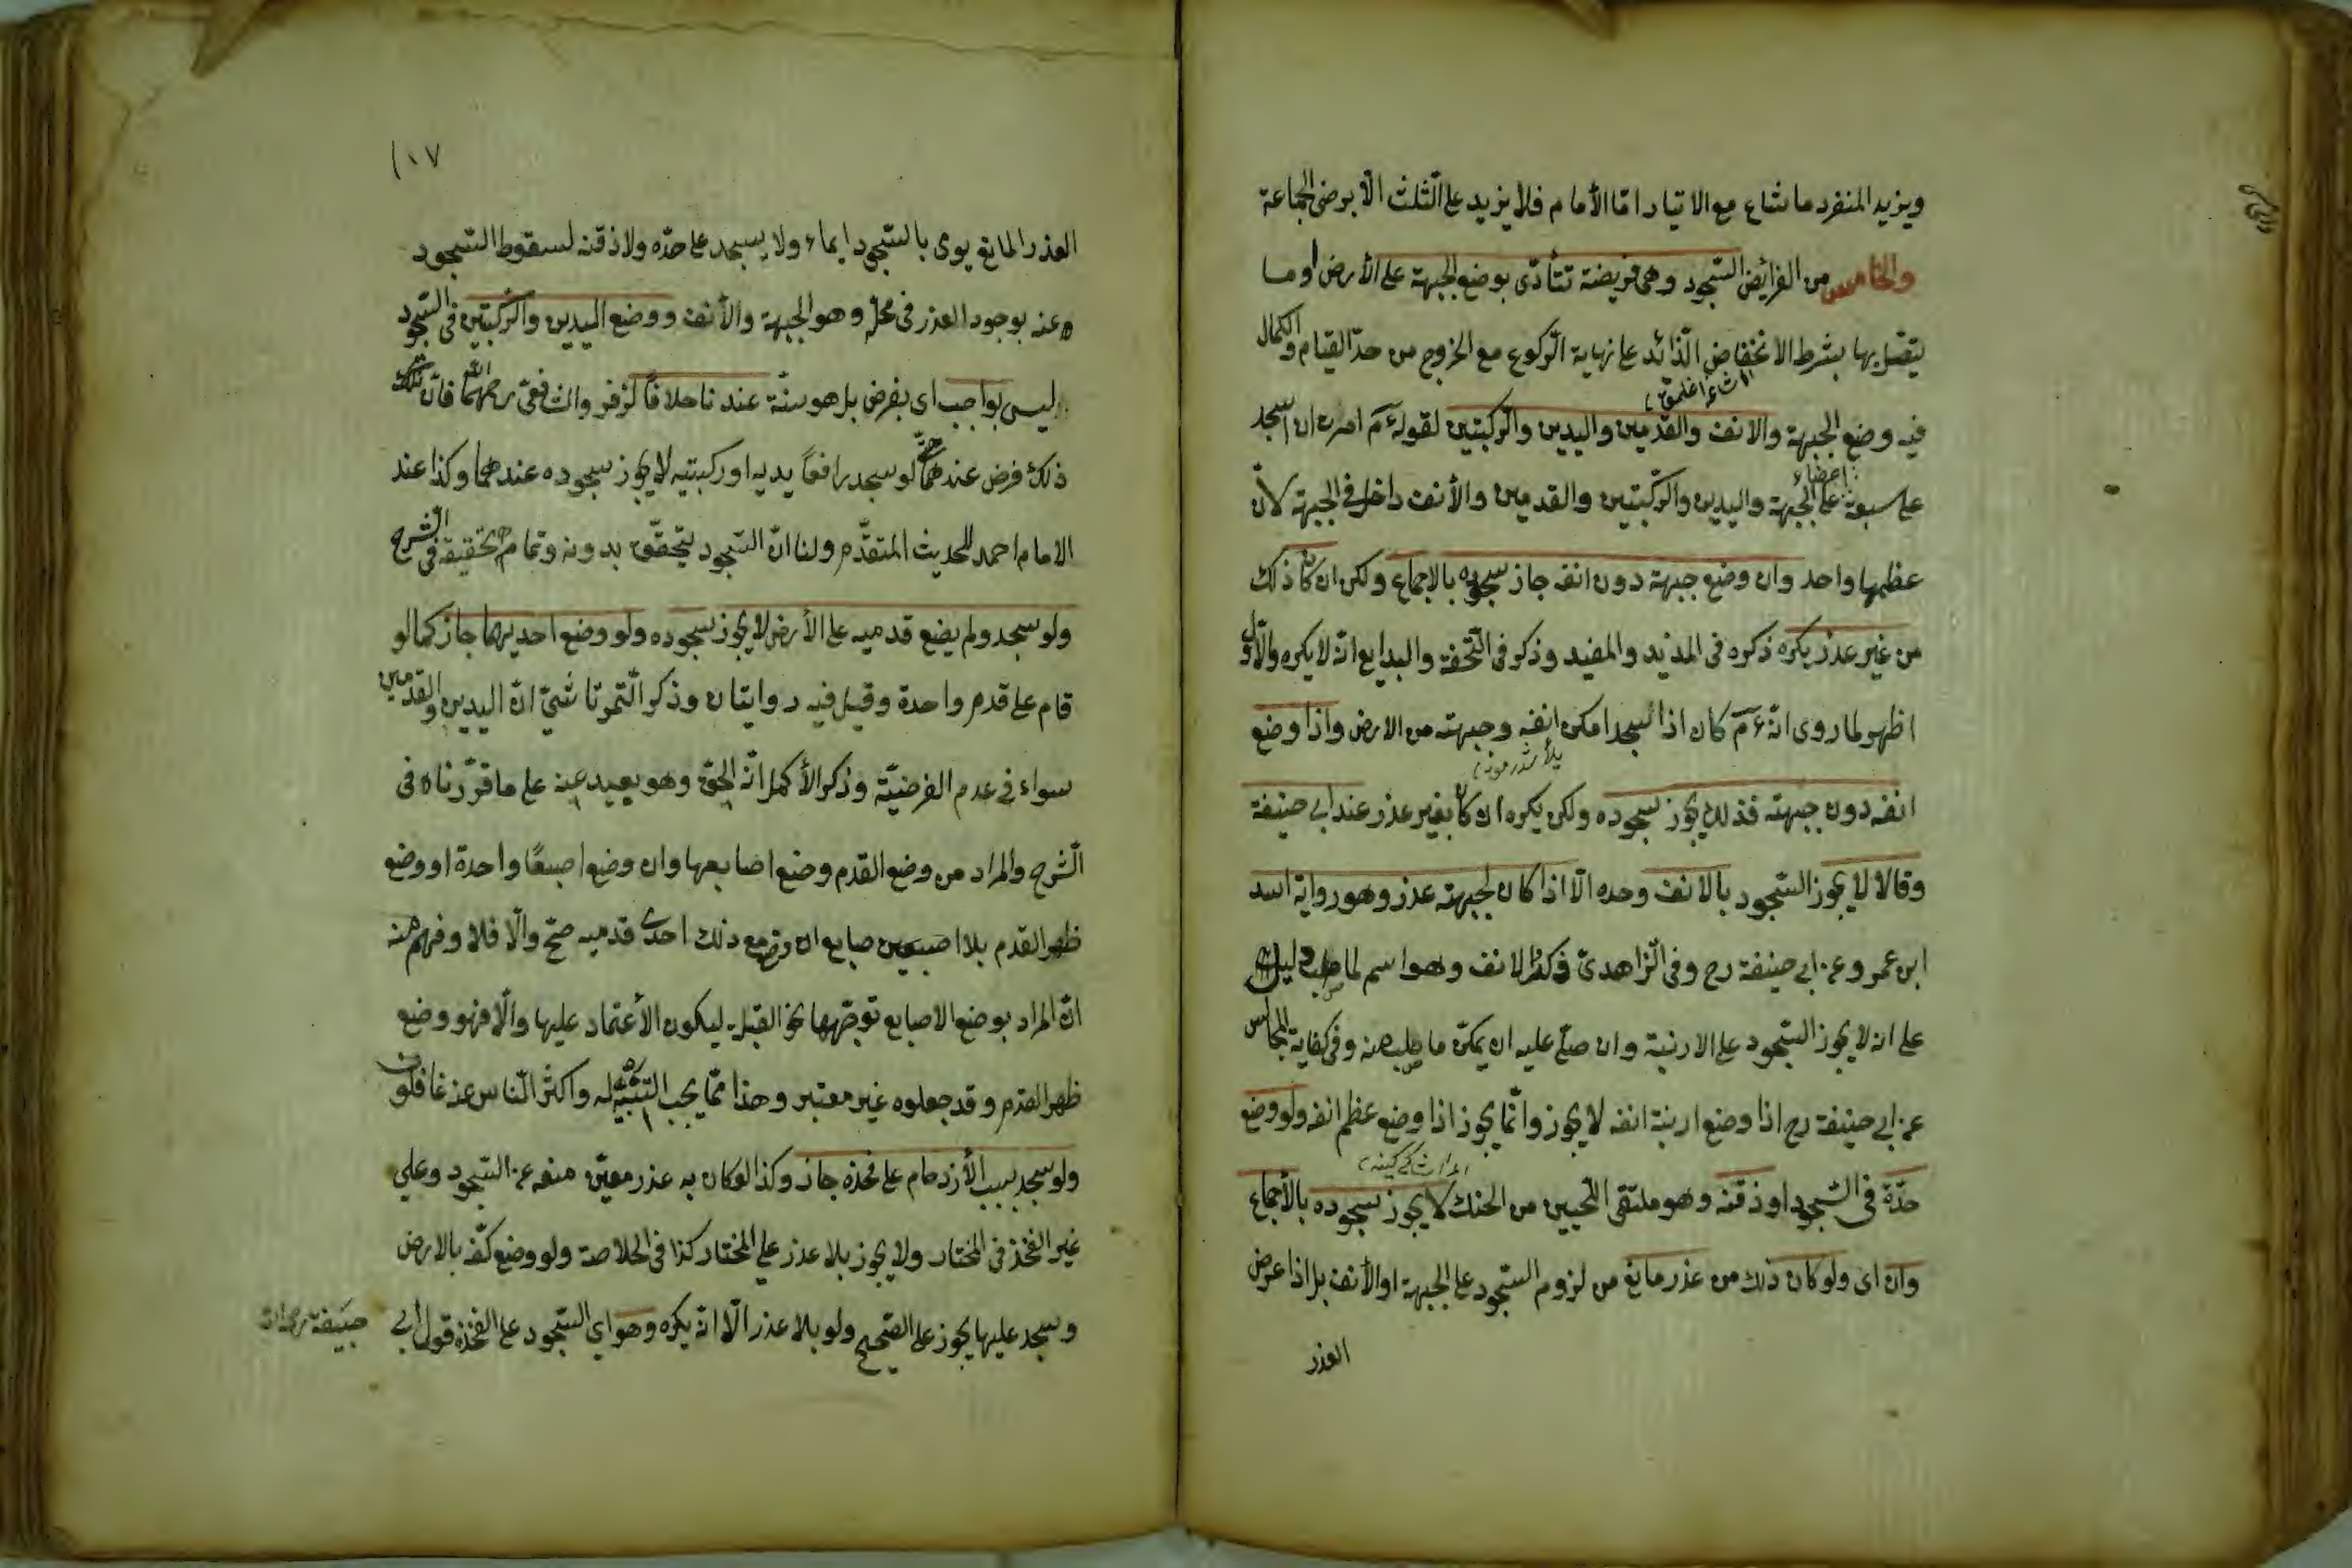 ويزيد المنفرد ما شاء مع الايتار امّا الأمام فلا يزيد على الثلث الّا برضى الجماعة
والخامس من الفرائض السّجود وهى فريضة تتأدّى بوضع الجبهة على الأرض او ما
يتصل بها بشرط الانخفاض الزّائد على نهاية الرّكوع مع الخروج من حدّ القيام والكمال
فيه وضع الجبهة والانف والقدمين واليدين والرّكبتين لقوله عم امرت ان اسجد
على سبعة اعضاء على الجبهة واليدين والرّكبتين والقدمين والأنف داخل فى الجبهة لأنّ
عظمها واحد وان وضع جبهة دون انفه جاز سجوده بالاجماع ولكن ان كان ذلك
من غير عذر يكره ذكره فى المزيد والمفيد وذكر فى التّحفة والبدايع انّه لا يكره والأوّل
اظهر لما روى انّه عم كان اذا سجد امكن انفه وجبهته من الارض واذا وضع
انفه دون جبهته فذلك يجوز سجوده ولكن يكره ان كان بغير عذر عند ابى حنيفة
وقالا لا يجوز السّجود بالانف وحده الّا اذا كان لجبهته عذر وهو رواية اسد
ابن عمر وعن ابى حنيفة رح وفى الزّاهدىّ ذكر الانف وهو اسم لما صلب دليل
على انه لا يجوز السّجود على الارنبة وان عليه ان يمكّن ما صلب منه وفى كفاية المجالس
عن ابى حنيفة رح اذا وضع ارنبة انفه لا يجوز وانّما يجوز اذا وضع عظم انفه ولو وضع
خدّه فى السّجود او ذقنه وهو ملتقى اللّحيين من الحنك لا يجوز سجوده بالأجماع
وان اى ولو كان ذلك من عذر مانع من لزوم السّجود على الجبهة او الأنف بل اذا عرض
العذر
١٠٧
العذر المانع يومى بالسّجود ايماء ولا يسجد على خدّه ولا ذقنه لسقوط السّجود
عنه بوجود العذر فى محلّه وهو الجبهة والأنف ووضع اليدين والرّكبتين فى السّجود
ليس بواجب اى بفرض بل هو سنّة عندنا خلافًا لزفر والشافعىّ رحمهما اللّه فانّ
ذلك فرض عندهما حتّى لو سجد رافعًا يديه او ركبتيه لا يجوز سجوده عندهما وكذا عند
الامام احمد للحديث المتقدّم ولنا انّ السّجود يتحقّق بدونه وتمام تحقيقه فى الشّرح
ولو سجد ولم يضع قدميه على الأرض لا يجوز سجوده ولو وضع احديهما جاز كما لو
قام على قدم واحدة وقيل فيه روايتان وذكر التّمرتاشىّ انّ اليدين والقدمين
سواء فى عدم الفرضيّة وذكر الأكمل انّه الحقّ وهو بعيد عنه على ما قرّرناه فى
الشّرح والمراد من وضع القدم وضع اصابعها وان وضع اصبعًا واحدة او وضع
ظهر القدم بلا اصابع ان وضع مع ذلك احدى قدميه صحّ والّا فلا وفهم منه
انّ المراد بوضع الاصابع توجّهها نحو القبلة ليكون الأعتماد عليها والّا فهو وضع
ظهر القدم وقد جعلوه غير معتبر وهذا ممّا يجب التّنبيه له واكثر النّاس عنه غافلون
ولو سجد بسبب الأزدحام على فخذه جاز وكذا لو كان به عذر معيّن منعه عن السّجود وعلى
غير الفخذ فى المختار ولا يجوز بلا عذر على المختار كذا فى الخلاصة ولو وضع كفّه بالارض
وسجد عليها يجوز على الصّحيح ولو بلا عذر الّا انّه يكره وهو اى السّجود على الفخذ قول ابى حنيفة رحمه الله